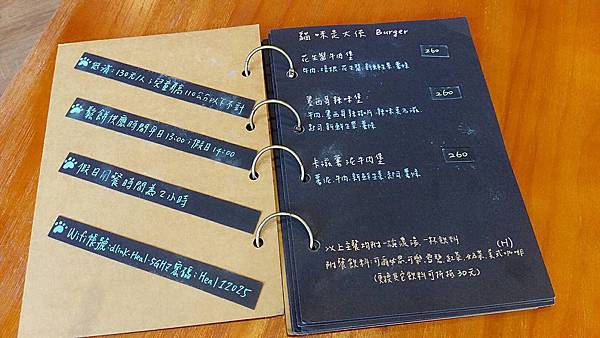 低消:130元/人;兒童身高110公分以下不計
鬆餅供應時間平日13:00;假日14:00
假日用餐時間為2小時
Wifi帳號:dlink-Heal-5GHz 密碼:Heal12025
貓咪走大俠 Burger
花生醬牛肉堡 260
牛肉、培根、花生醬、新鮮生菜、薯條
墨西哥辣味堡 260
牛肉、墨西哥辣椒片、辣味
起司、新鮮生菜、薯條
卡滋薯泥牛肉堡 260
薯泥、牛肉、新鮮生菜、起司、薯條
以上主餐均附一碗濃湯、一杯飲料
附餐飲料:可爾必思、可樂、雪碧、紅茶、奶茶、美式咖啡(H)
(更換其它飲料可折抵30元)